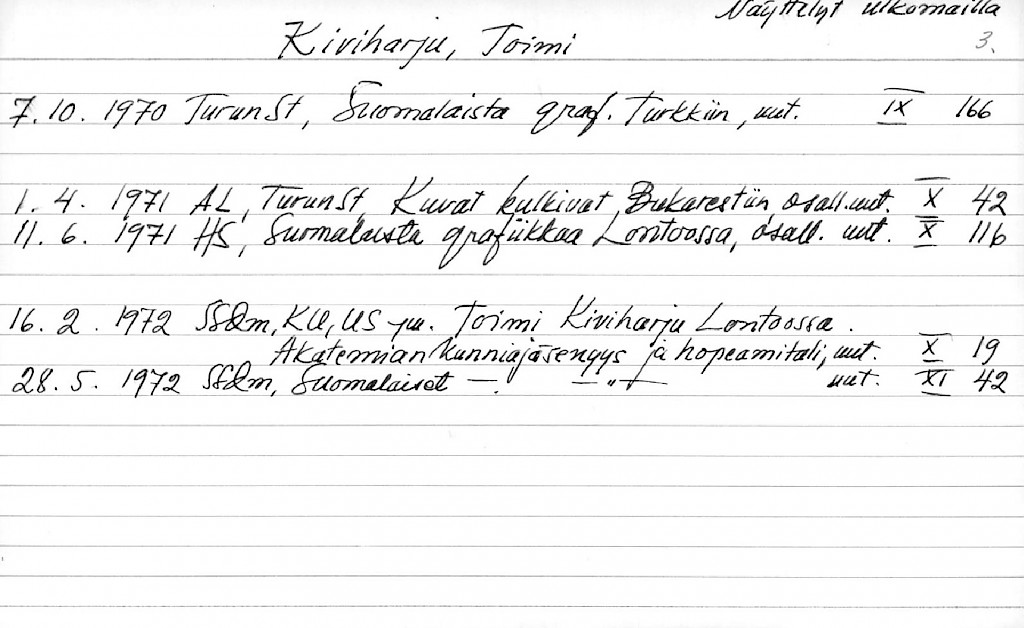 Näyttelyt ulkomailla
Kiviharju, Toimi
3.
7.10. 1970 TurunSt, Suomalaista graf. Turkkiin, uut. IX 166
1. 4. 1971 AL, TurunSt, Kuvat kulkivat Bukarestiin osall.uut. X 42
11. 6. 1971 HS, Suomalaista grafiikkaa Lontoossa, osall. uut. X 116
16. 2. 1972 SSdm, KU, US ym. Toimi Kiviharju Lontoossa.
Akatemian kunniajäsenyys ja hopeamitali, uut. X 19
28. 5. 1972 SSdm, Suomalaiset — . — " — uut. XI 42